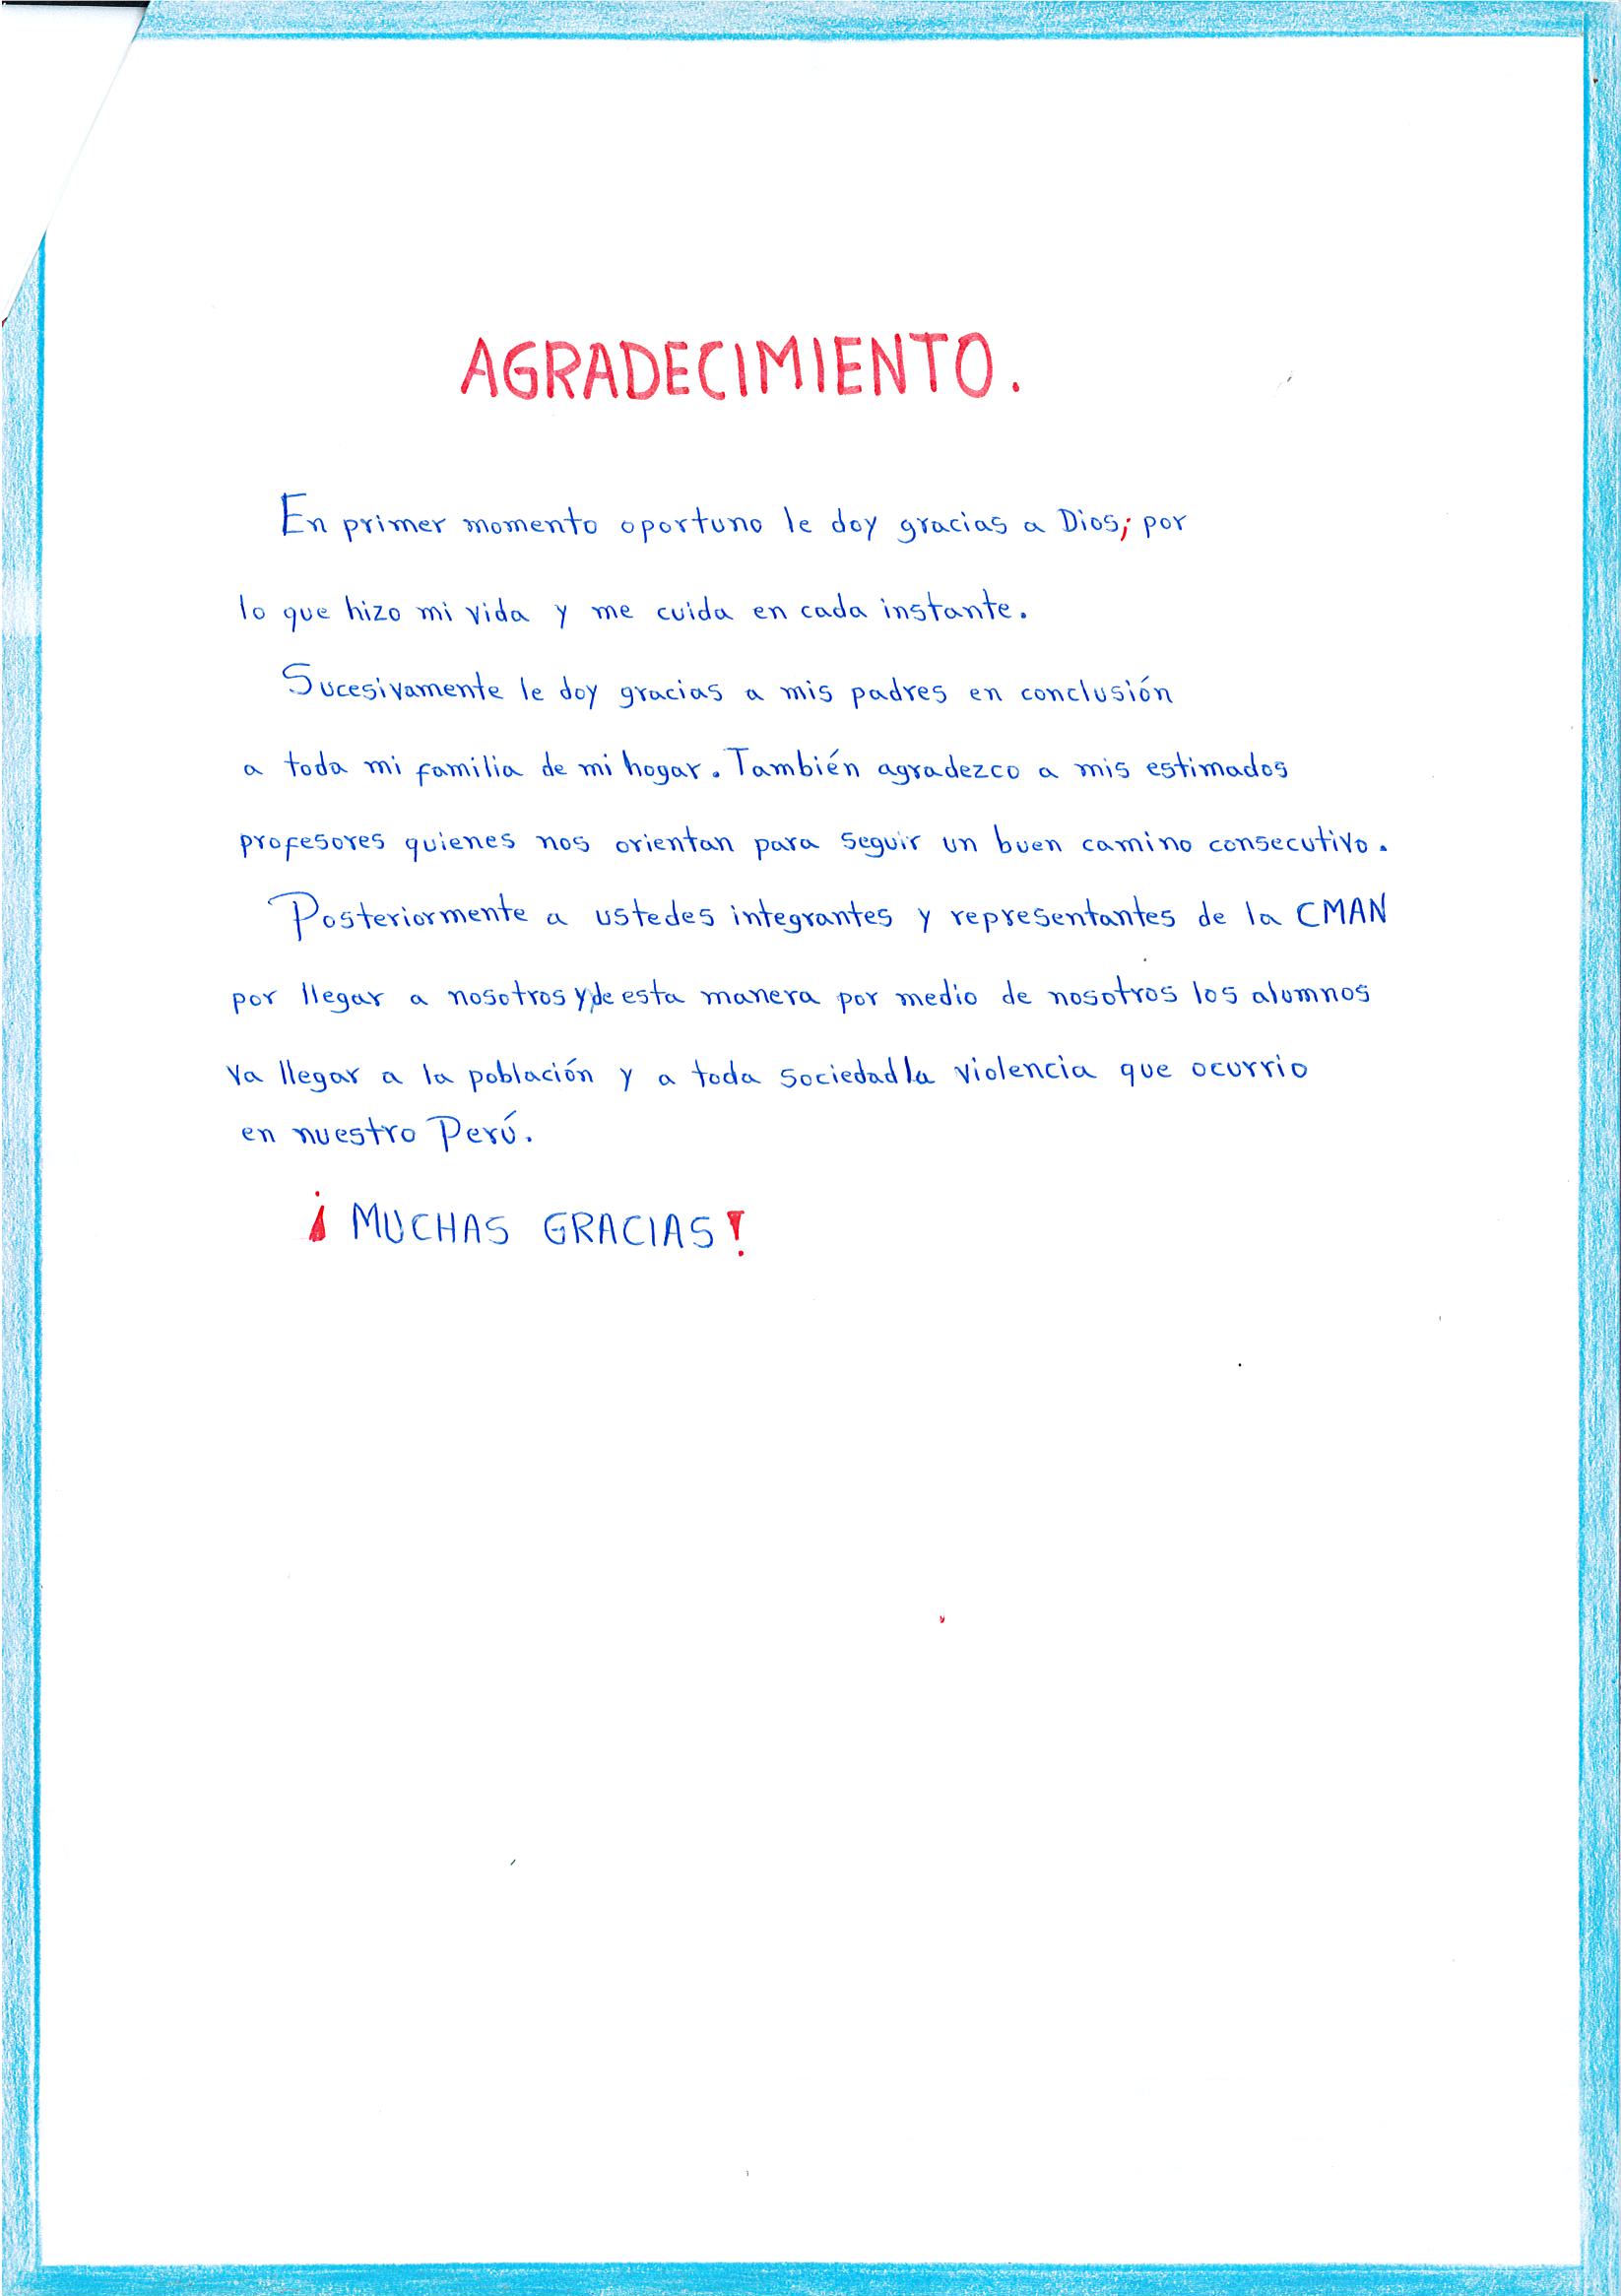 AGRADECIMIENTO.
En primer momento oportuno le doy gracias a Dios; por
lo que hizo mi vida y me cuida en cada instante.
Sucesivamente le doy gracias a mis padres en conclusión
a toda mi familia de mi hogar. También agradezco a mis estimados
profesores quienes nos orientan para seguir un buen camino consecutivo.
Posteriormente a ustedes integrantes y representantes de la CMAN
por llegar a nosotros y de esta manera por medio de nosotros los alumnos
va llegar a la población y a toda sociedad la violencia que ocurrio
en nuestro Perú.
¡MUCHAS GRACIAS!